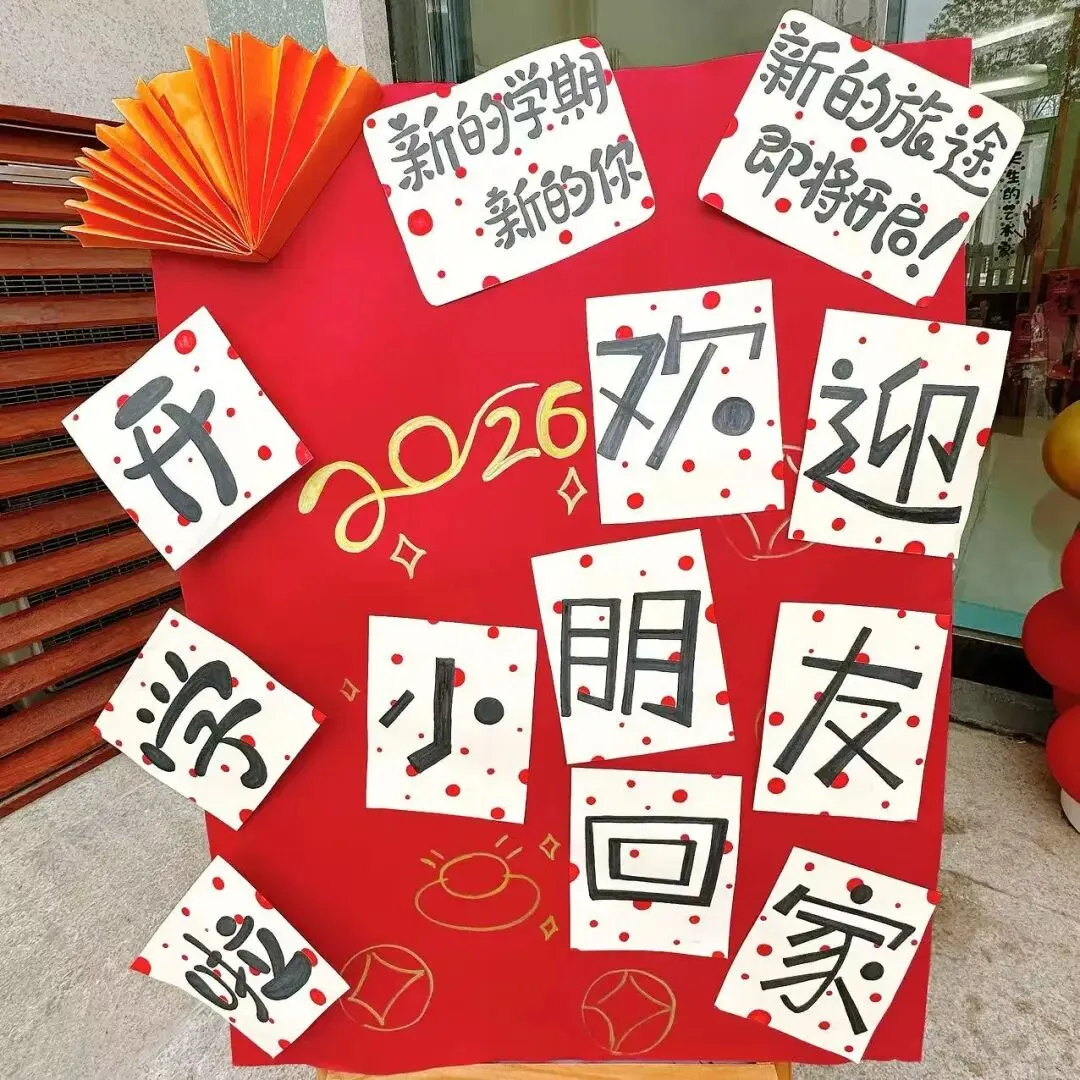 新的学期
新的你
新的旅途
即将开启!
2026
欢迎
小朋友
回家
开学啦
生的艺术家